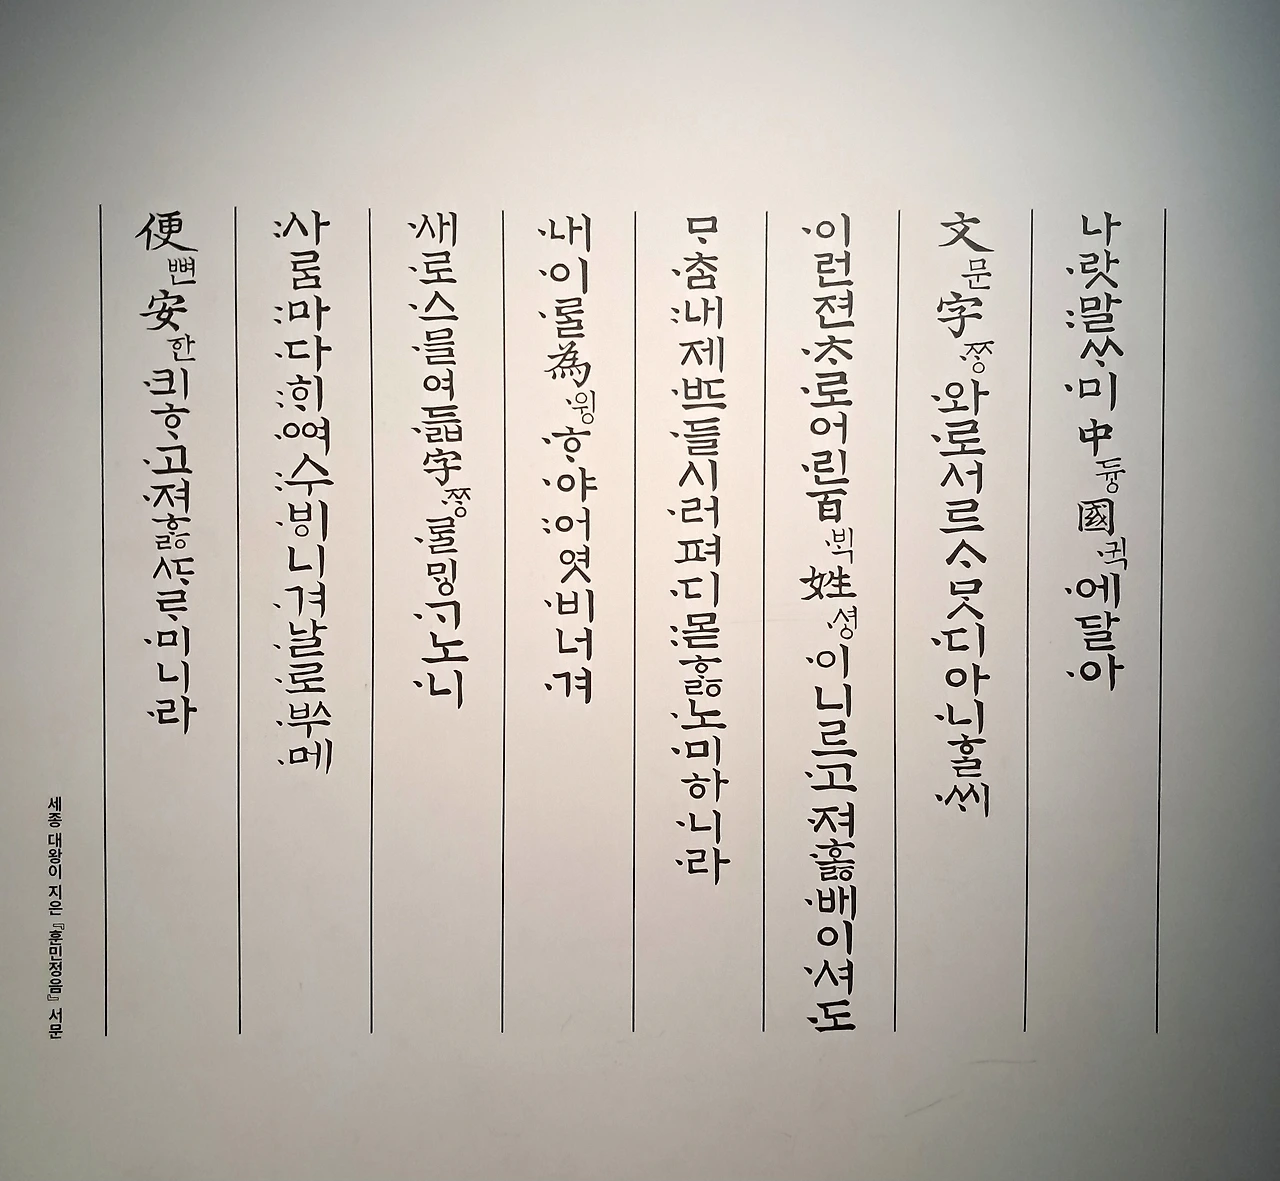 나·랏:말ᄊᆞ·미 中듕國·귁·에 달·아
文문字·ᄍᆞᆼ·와·로 서르 ᄉᆞᄆᆞᆺ·디 아·니ᄒᆞᆯ·ᄊᆡ
·이런 젼·ᄎᆞ·로 어·린 百·ᄇᆡᆨ姓·셩·이 니르·고·져 ·호ᇙ·배 이·셔·도
ᄆᆞ·ᄎᆞᆷ:내 제 ·ᄠᅳ·들 시·러 펴·디 :몯 ᄒᆞᇙ·노·미 하·니·라
·내 ·이·ᄅᆞᆯ 為·윙·ᄒᆞ·야 :어엿·비 너·겨
·새·로 ·스·믈여·듧 字·ᄍᆞᆼ·ᄅᆞᆯ ᄆᆡᇰ·ᄀᆞ노·니
:사ᄅᆞᆷ:마·다 :ᄒᆡ·ᅇᅧ :수·ᄫᅵ니·겨 ·날·로 ·ᄡᅮ·메
便뼌安한·킈 ᄒᆞ·고·져 ᄒᆞᇙ ᄯᆞᄅᆞ·미니·라
세종 대왕이 지은 『훈민정음』 서문